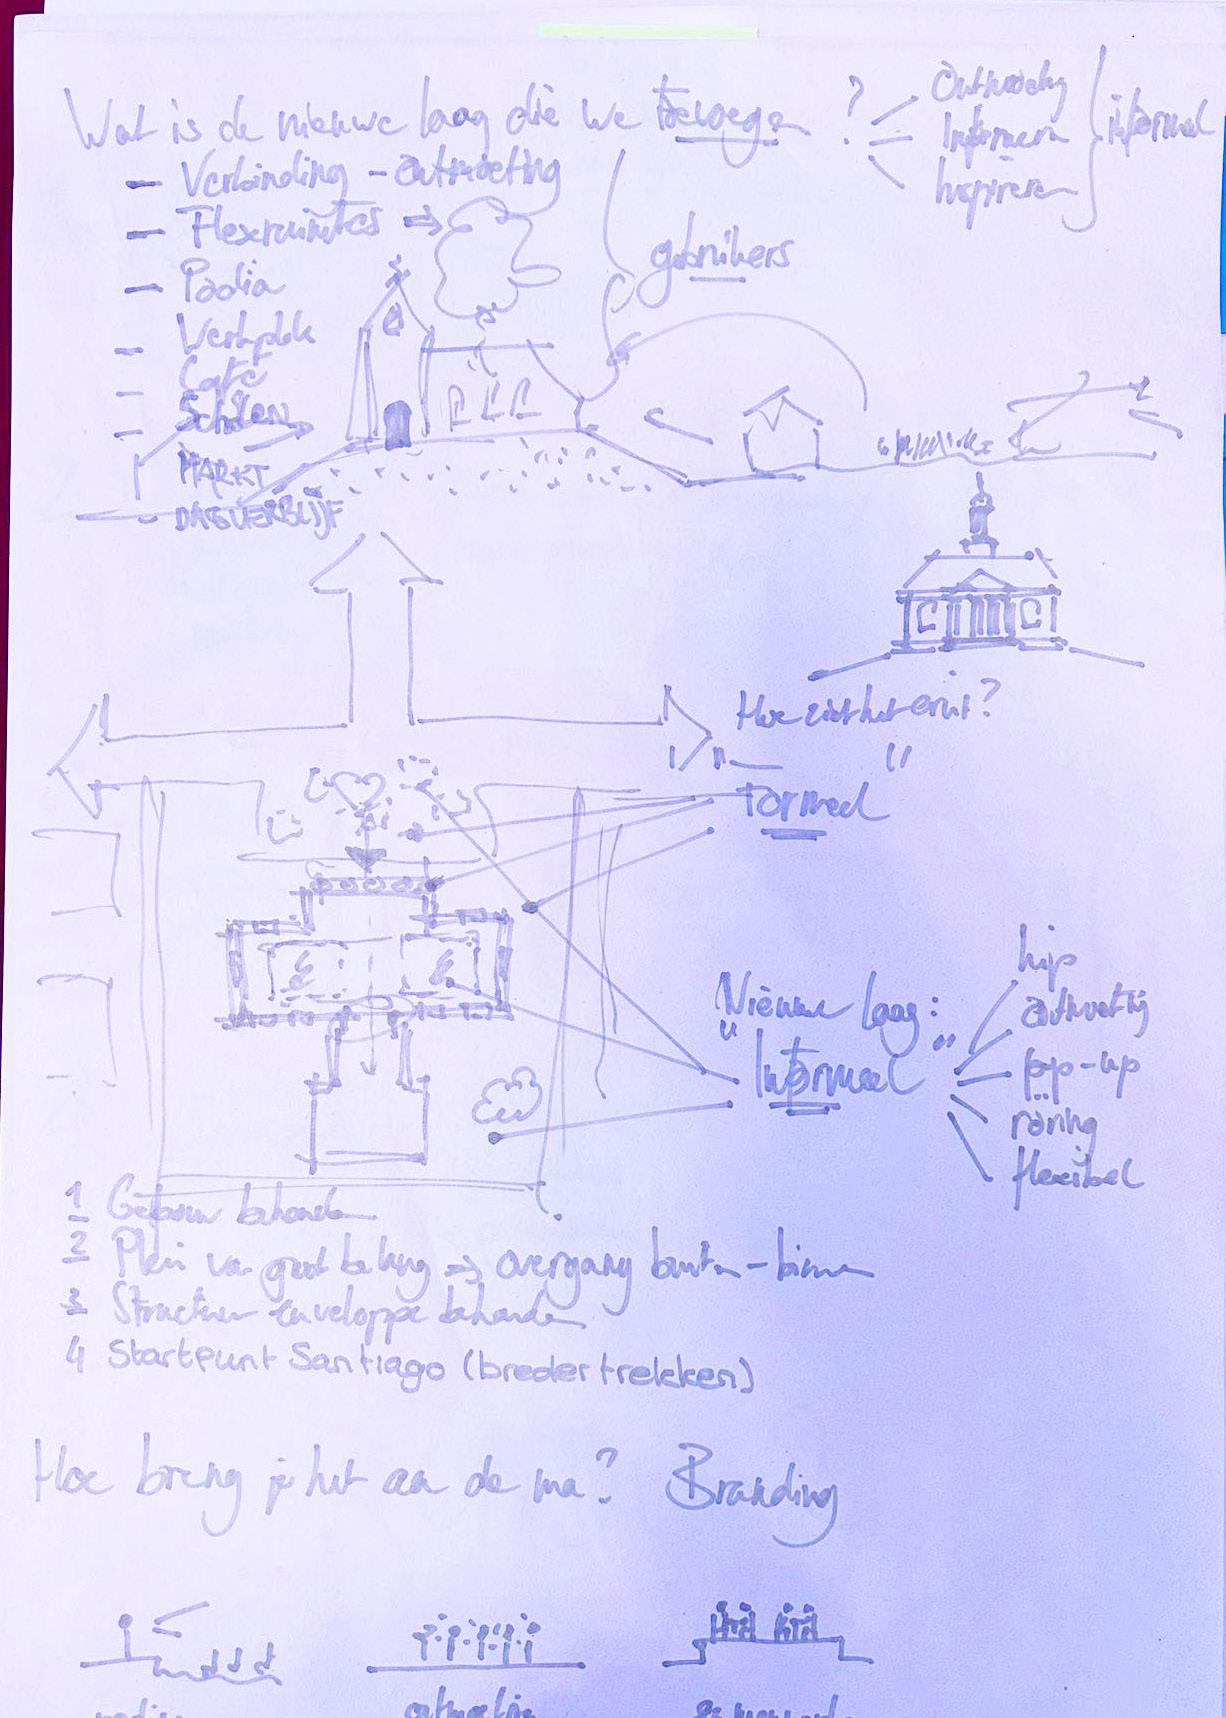 Wat is de nieuwe laag die we toevoegen ?
Ontmoeting
Informeren
Inspireren
informeel
– Verbinding – ontmoeting
– Flexruimtes ⇒
– Podia
– Werkplek
– Café
– Scholen
MARKT
– DAGVERBLIJF
gebruikers
Hoe ziet het eruit?
"
Formeel
Nieuwe laag:
" Informeel "
hip
ontmoeting
pop-up
roering
flexibel
1 Gebouw behouden
2 Plein van groot belang ⇒ overgang buiten – binnen
3 Structuur enveloppe behouden
4 Startpunt Santiago (breder trekken)
Hoe breng je het aan de man? Branding
podium
ontmoeting